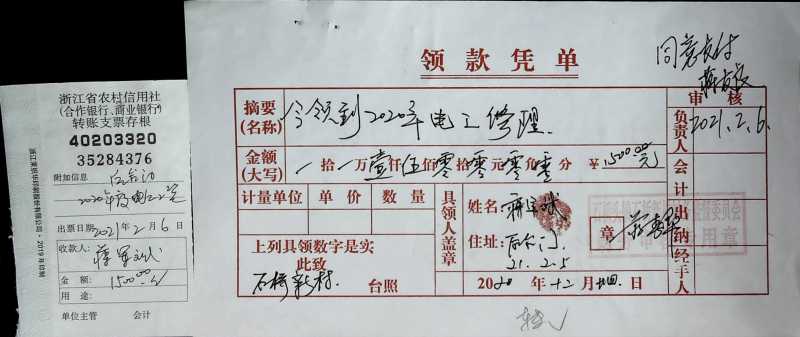 浙江省农村信用社
(合作银行、商业银行)
转账支票存根
40203320
35284376
附加信息
2020年度电工工资
出票日期2021年2月6日
收款人:
蒋军斌
金 额:1500.00元
用 途:
单位主管 会计
领款凭单
同意支付
摘要
(名称)
今领到2020年电工修理
金额
(大写)
一拾一万壹仟伍佰零拾零元零角零分 ¥1500.00元
计量单位 单价 数量
上列具领数字是实
此致
石桥新村 台照
具领人盖章
姓名:
住址:后台门
21.2.5
2020年十二月廿四日
审核
负责人
2021.2.6
会计
出纳
经手人
章